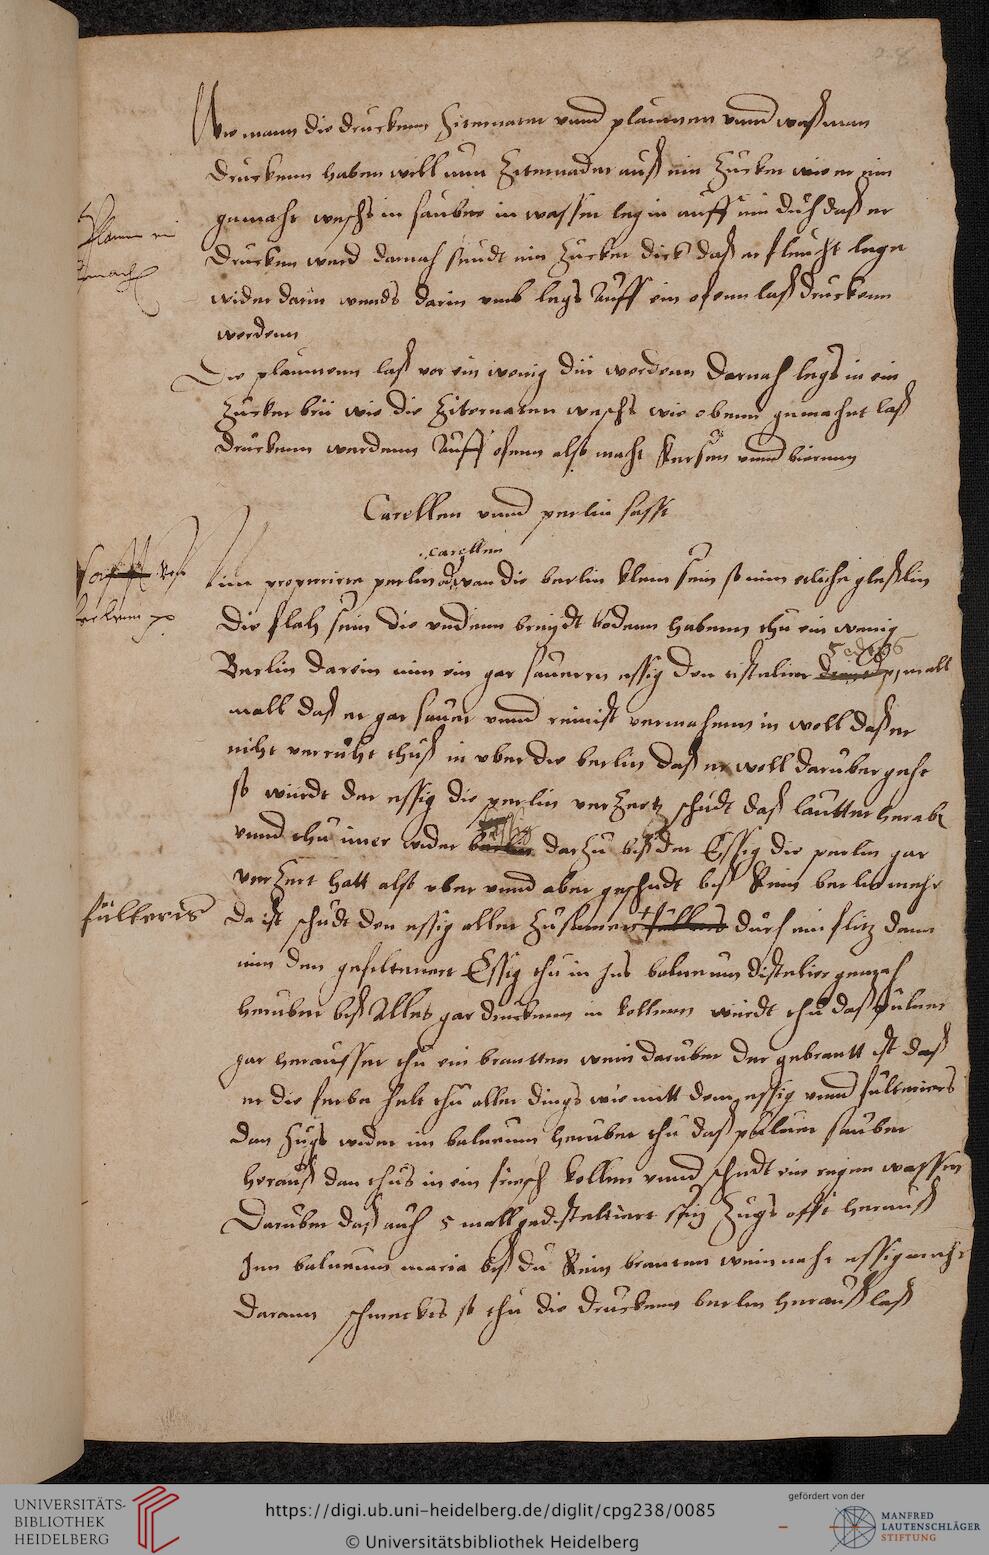 Wie mann die druckenn Zitternaten vnnd plaumen vnnd waß man
druckenn haben will nim Zitternaden auß ein Zucker wie er ein
gemacht weschs in sauber in wasser leg in auff ein duch daß er
drucken werd darnach seudt ein Zucker dick daß er lege
wider darin wends darin vmb legs auff ein ofenn laß druckenn
werdenn
Die plaumenn laß vor ein wenig dir werdenn darnach legs in ein
Zucker brü wie die Zitternaten weschs wie obenn gemachet laß
druckenn werdenn auff ofenn also macht kersen vnnd birnnen
Plaumen ein
mach
Carellen vnnd perlin safft
safft von
perlenn
carellen
im propperirn perlin od wan die berlin klein sein so nim etliche gleßlin
die flach sein die vndenn breydt bodenn habenn thu ein wenig
5 oder 6
Berlin darein nim ein gar sauernn essig den distelier mall
mall daß er gar sauer vnnd reinist vermachenn in woll daß er
nicht verrücht thuß in vber die berlin daß er woll darüber geht
so würdt der essig die perlin verzertz schüdt daß lautter herab
essig
vnnd thu imer wider berlin darzu biß der Essig die perlin gar
verzert hatt also vber vnnd aber geschüdt biß kein berlin mehr
fülteris
da ist schüdt den essig aller zusamen dürch ein filtz dann
nim den gefiltenert Essig thu in Ins balneum distelier gemach
herüber biß alles gar druckenn in kolbenn würdt thu daß pulver
gar heraussen thu ein brantten wein darüber der gebrantt ist daß
er die ferbe helt thu aller dings wie mitt dem essig vnnd fülterirs
dan zugs wider im balneum herüber thu daß pulver sauber
herauß dan thus in ein frisch kolben vnnd schüdt ein regen wasser
Darüber daß auch 5 mall gedisteliert sey zugs offt herauß
Inn balneum maria biß du kein brantten wein noch essig mehr
darann schmeckts so thu die druckenn berlin herauß laß
UNIVERSITÄTS-
BIBLIOTHEK
HEIDELBERG
https://digi.ub.uni-heidelberg.de/diglit/cpg238/0085
© Universitätsbibliothek Heidelberg
gefördert von der
MANFRED
LAUTENSCHLÄGER
STIFTUNG